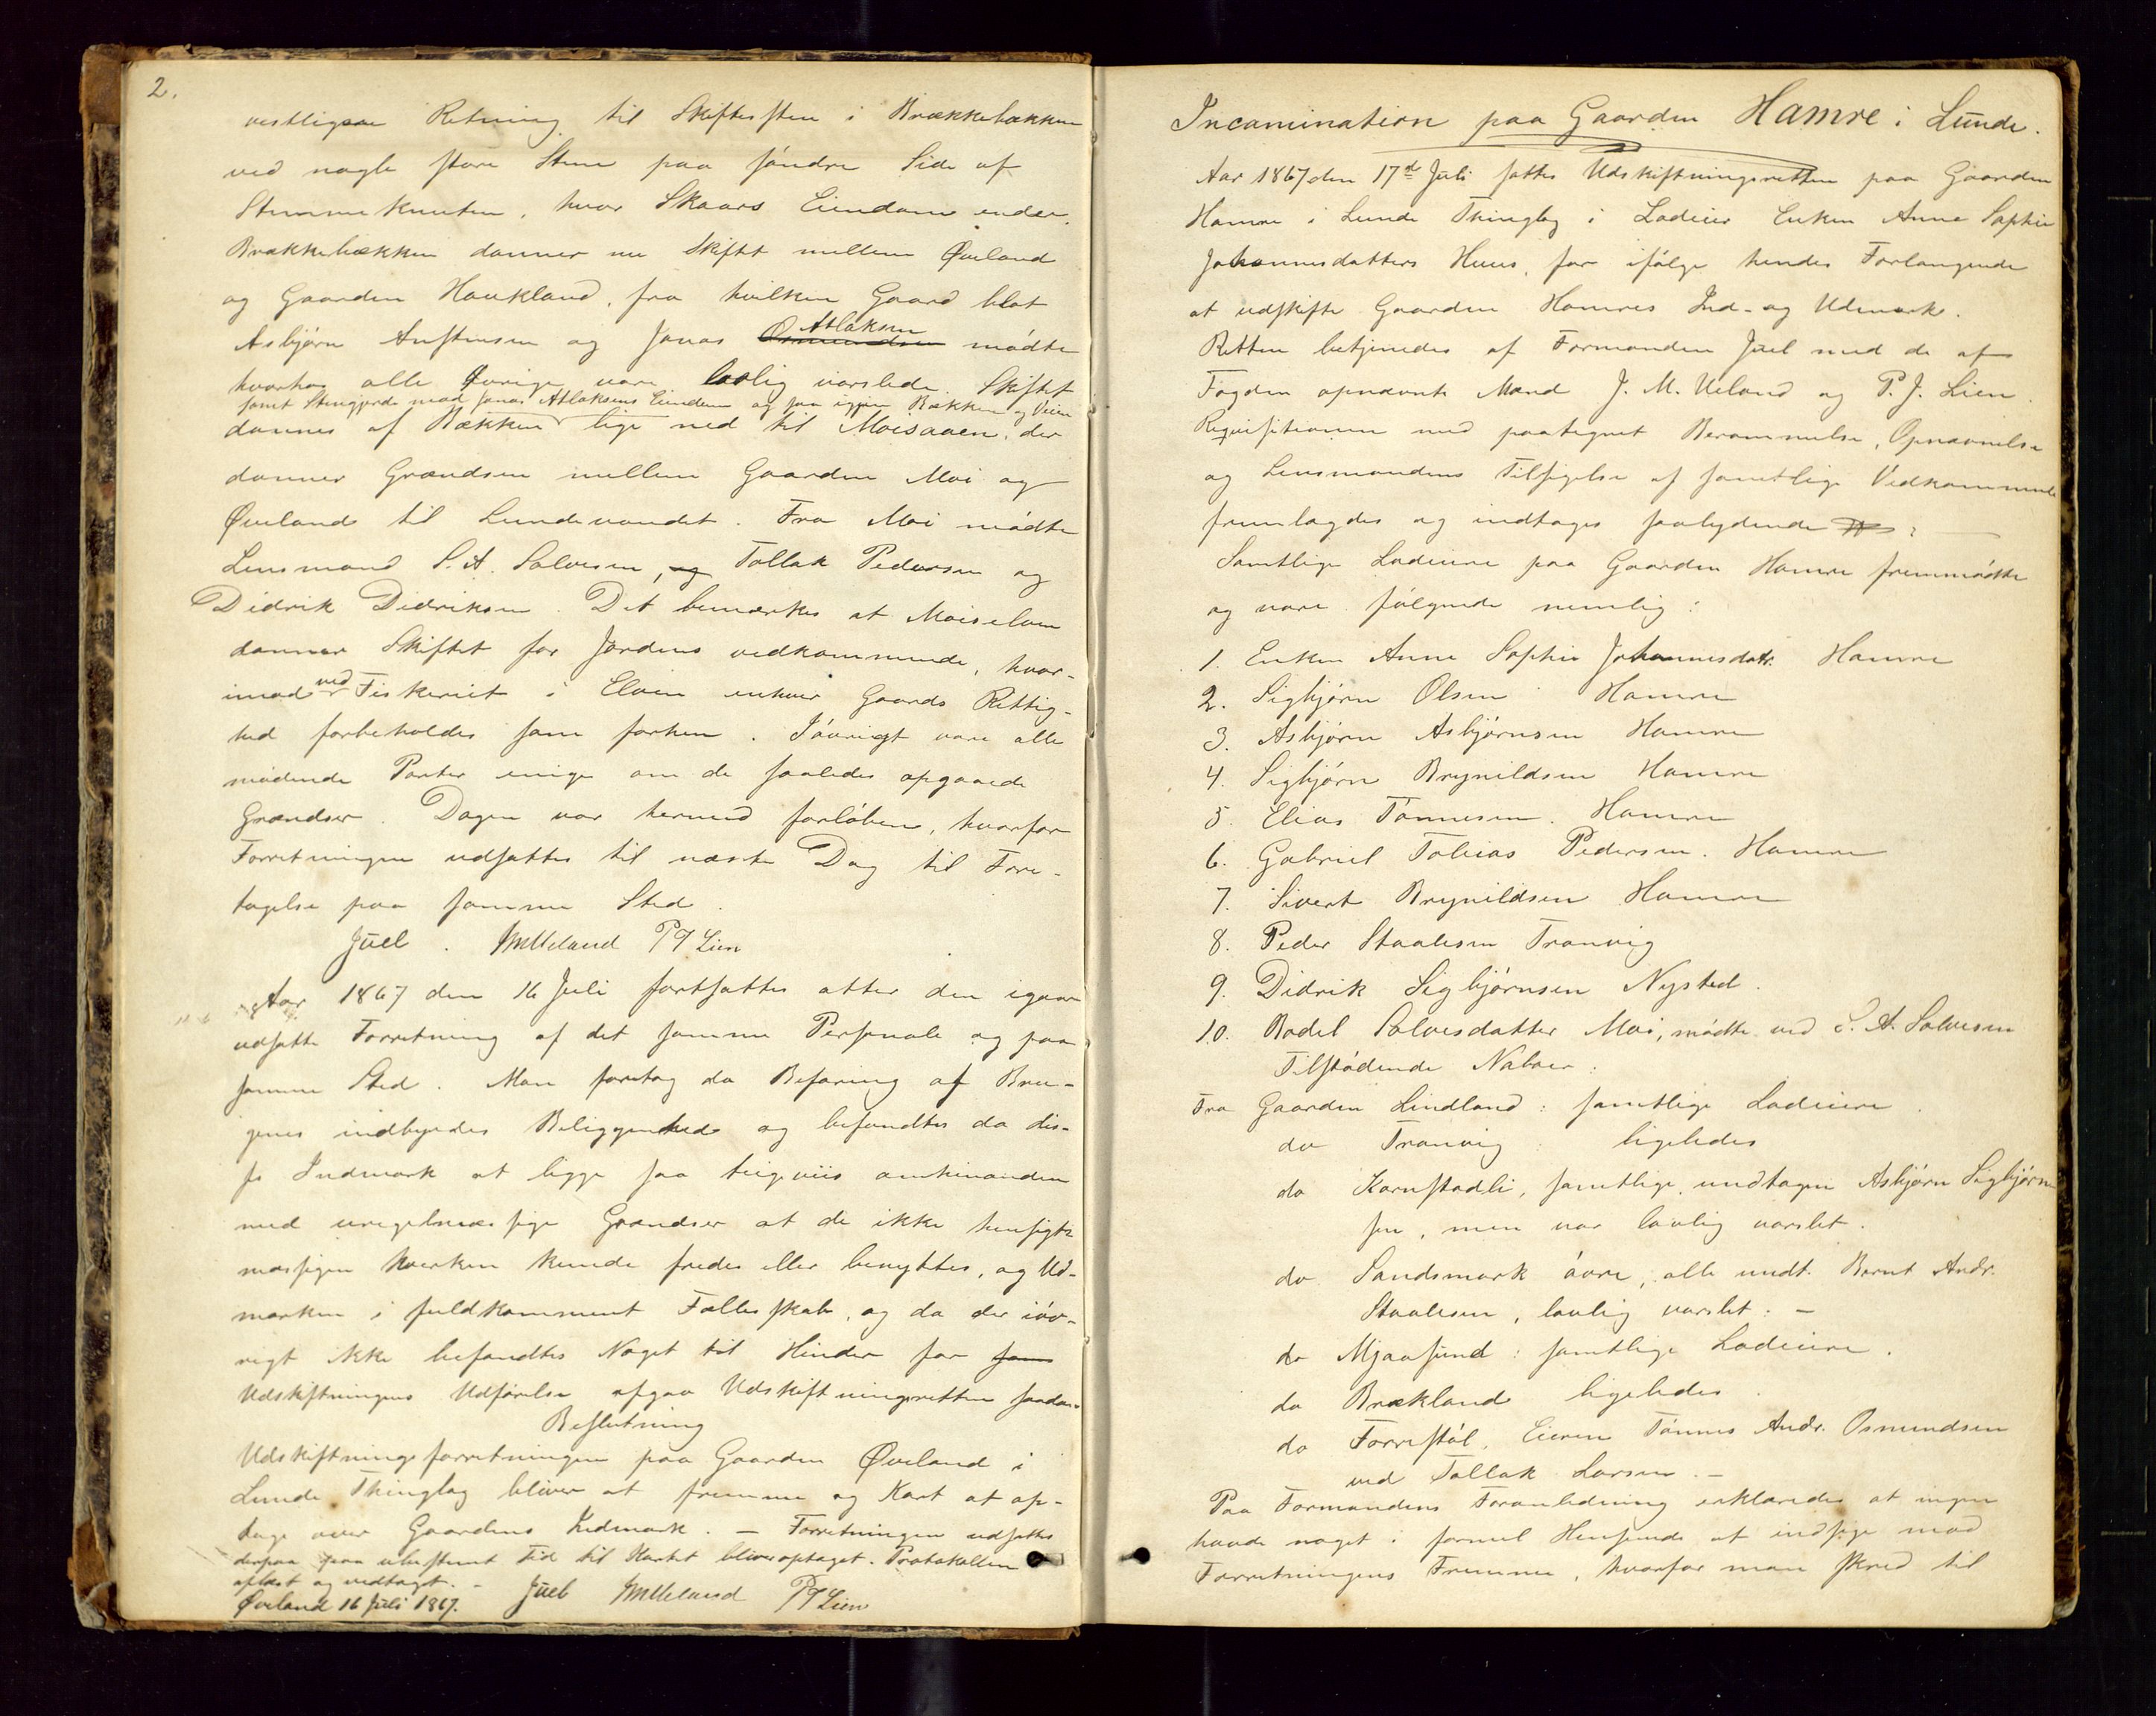 2.
vestligere Retning til Skiftesften i Brækkebækken
ved nogle store Stene paa söndre Side af
Stemmeknuten, hvor Skaars Eiendom ender.
Brækkebækken danner nu Skiftet mellem Øveland
og Gaarden Haukland, fra hvilken Gaard blot
Asbjörn Austensen og Jonas Osmundsen Atlaksen mödte
hvorhos alle Øvrige vare lovlig varslede. Skiftet
samt Stengjerde mod Jonas Atlaksens Eiendom og saa igjen Bækken og Veien
dannes af Bækken lige ned til Moisaaen, der
danner Grændsen mellem Gaarden Moi og
Øveland til Lundevandet. Fra Moi mödte
Lensmand S. A. Salvesen, og Tollak Pedersen og
Didrik Didriksen. Det bemærkes at Moiselven
danner Skiftet for Jordens vedkommende, hvor-
imod ved Fiskeriet i Elven enhver Gaards Rettig-
hed forbeholdes som forhen. Iövrigt vare alle
mödende Parter enige om de saaledes opgaaede
Grændser. Dagen var hermed forlöben, hvorfor
Forretningen udsattes til næste Dag til Fore-
tagelse paa samme Sted.
Juel. JMUeland PJ Lien
Aar 1867 den 16 Juli fortsattes atter den igaar
udsatte Forretning af det samme Personale og paa
samme Sted. Man foretog da Befaring af Bru-
genes indbyrdes Beliggenhed og befandtes da dis-
se Indmark at ligge saa teigviis omhinanden
med uregelmæssige Grændser at de ikke hensigts
mæssigen hverken kunde fredes eller benyttes, og Ud-
marken i fuldkomment Fællesskab, og da der iöv-
rigt ikke befandtes Noget til Hinder for som
Udskiftningens Udförelse afgav Udskiftningsretten saadan
Beslutning
Udskiftningsforretningen paa Gaarden Øveland i
Lunde Thinglag bliver at fremme og Kart at op-
tage over Gaardens Indmark. – Forretningen udsattes
derpaa paa ubestemt Tid til Kartet bliver optaget. Protokollen
oplæst og vedtaget. –
Øveland 16 Juli 1867. Juel JMUeland PJ Lien
Incamination paa Gaarden Hamre i Lunde.
Aar 1867 den 17de Juli sattes Udskiftningsretten paa Gaarden
Hamre i Lunde Thinglag i Lodeier Enken Anne Sophie
Johannesdatters Huus, for ifölge hendes Forlangende
at udskifte Gaarden Hamres Ind- og Udmark.
Retten betjenedes af Formanden Juel med de af
Fogden opnævnte Mænd J. M. Ueland og P. J. Lien.
Requisitionen med paategnet Berammelse, Opnævnelse
og Lensmandens Tilsigelse af samtlige Vedkommende
fremlagdes og indtages saalydende :
Samtlige Lodeiere paa Gaarden Hamre fremmödte
og vare fölgende nemlig:
1. Enken Anne Sophie Johannesdatr. Hamre
2. Sigbjörn Olsen Hamre
3. Asbjörn Asbjörnsen Hamre
4. Sigbjörn Brynildsen Hamre
5. Elias Tönnesen. Hamre
6. Gabriel Tobias Pedersen. Hamre
7. Sivert Brynildsen Hamre
8. Peder Staalesen Tranvig
9. Didrik Sigbjörnsen Nysted.
10. Bodel Salvesdatter Moi, mödte ved S. A. Salvesen
Tilstödende Naboer:
Fra Gaarden Lindland: samtlige Lodeiere.
do Tranvig ligeledes
do Kornstadli, samtlige undtagen Asbjörn Sigbjörn
sen, men var lovlig varslet.
do Sandsmark övre, alle undt. Bernt Andr.
Staalesen, lovlig varslet. –
do Mjaasund: samtlige Lodeiere.
do Brækland ligeledes.
do Forrestöl, Eieren Tönnes Andr. Osmundsen
ved Tollak Larsen. –
Paa Formandens Foranledning erklæredes at ingen
havde noget i formel Henseende at indsige mod
Forretningens Fremme, hvorfor man skred til